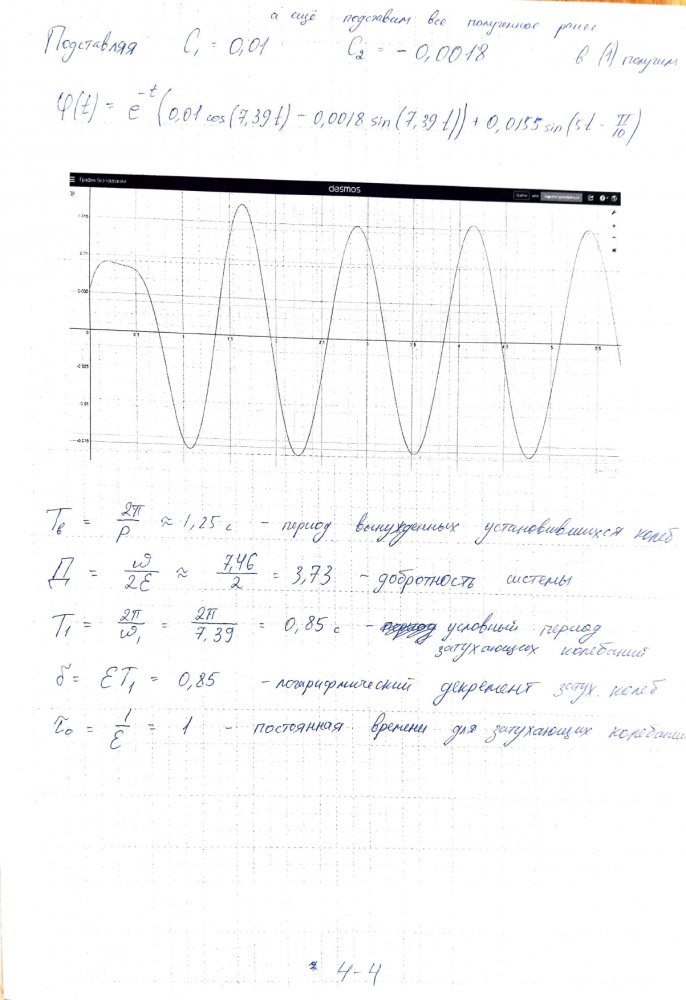 а ещё подставим все полученное ранее
Подставляя C₁ = 0,01 C₂ = - 0,0018 в (1) получим
φ(t) = e^{-t} (0,01 cos(7,39t) - 0,0018 sin(7,39t)) + 0,0155 sin(5t - π/10)
desmos
0.015
0.01
0.005
0 0.5 1 1.5 2 2.5 3 3.5 4 4.5 5 5.5
-0.005
-0.01
-0.015
T_в = 2π/p ≈ 1,25 с - период вынужденных установившихся колеб
Д = ω/2ε ≈ 7,46/2 = 3,73 - добротность системы
T₁ = 2π/ω₁ = 2π/7,39 = 0,85 с - условный период
затухающих колебаний
δ = εT₁ = 0,85 - логарифмический декремент затух. колеб
τ₀ = 1/ε = 1 - постоянная времени для затухающих колебаний
4-4